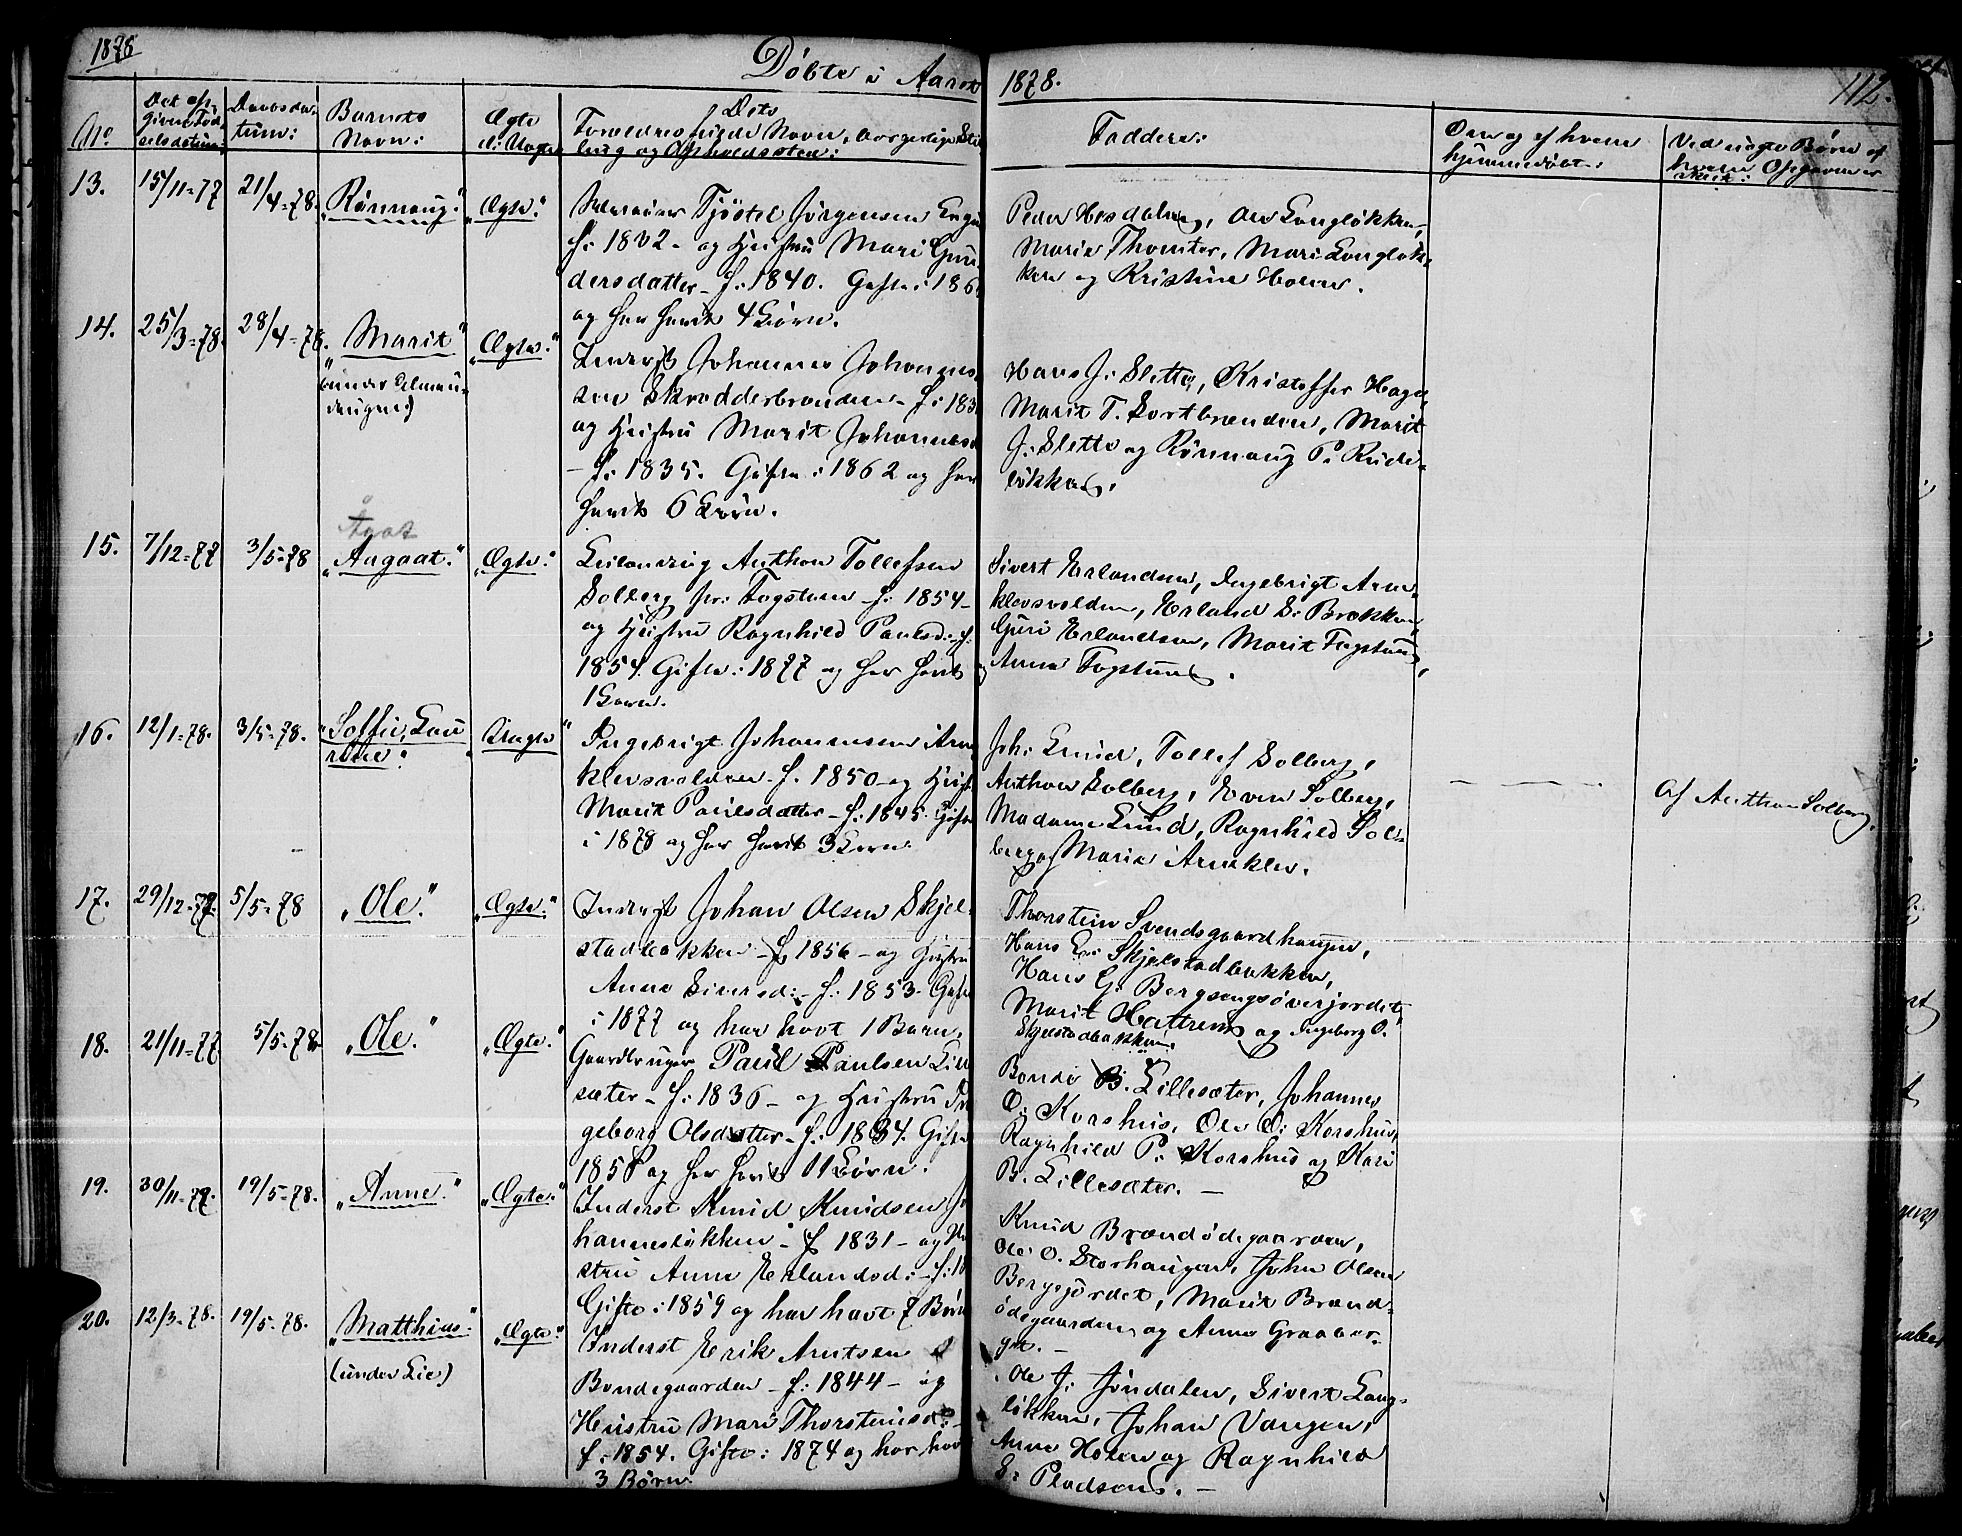 1878
Döbte i Aaret
1878.
112.
No
Det op-
givne Fød-
selsdatum:
Daabsda-
tum:
Barnets
Navn:
Ægte
el: Uægte
Dets
Forældres fulde Navn, borgerlige Stil
ling og Opholdssted:
Faddere:
Om og af hvem
hjemmedøbt:
Ved uægte Børn af
hvem Opgaven er
skeet:
13.
15/11-77
21/4-78.
"Rönnaug."
"Ægte."
Tjöstel Jörgensen
f: 1832 - og Hustru Mari Gun
dersdatter - f: 1840. Gifte: 186
og har havt 4 Börn.
Peder Hesdalen, Ole Langlökken,
Marie Thomter, Mari Langlök-
ken og Kristine Holen.
14.
25/3-78.
28/4-78.
"Marit"
"Ægte."
Inderst Johannes Johannes
sen Skrædderbrænden - f: 183
og Hustru Marit Johannesd
- f: 1835. Gifte: 1862 og har
havt 6 Börn.
Hans J: Slette, Kristoffer Hage,
Marit T. Sortbrænden, Marit
J: Slette og Rönnaug P: Rudi-
lökken.
15.
7/12-77
3/5-78
Aagaat
"Aagaat."
"Ægte."
Leilænding Anthon Tollefsen
Solberg fra: Fogstuen - f: 1854 -
og Hustru Ragnhild Paulsd: - f:
1854. Gifte: 1877 og har havt
1 Barn.
Sivert Erlandsen, Ingebrigt Arne-
klevsvolden, Erland S: Brekken,
Guri Erlandsen, Marit Fogstuen,
Anne Fogstuen.
16.
12/1-78.
3/5-78.
"Soffie Lau
"Uægte"
Ingebrigt Johannessen Arne
klevsvolden - f. 1850 - og Hust
Marit Paulsdatter - f: 1845. Gifte
i 1878 og har havt 3 Börn.
Joh: Lund, Tollef Solberg,
Anthon Solberg, Even Solberg,
Madame Lund, Ragnhild Sol-
berg og Marie Arneklev.
Af Anthon Solberg.
17.
29/12-77.
5/5-78
"Ole."
"Ægte."
Inderst Johan Olsen Skjel-
stadbakken - f 1856 - og Hustru
Anne Siversd: - f: 1853. Gifte
i 1877 og har havt 1 Barn.
Thorstein Svendsgaardhaugen,
Hans E: Skjelstadbakken,
Hans G: Bergsengsöverjordet,
Marit Hattrem og Ingeborg O.
Skjelstadbakken.
18.
21/11-77
5/5-78
"Ole."
"Ægte."
Gaardbruger Paul Paulsen Lille
sæter - f: 1836 - og Hustru In
geborg Olsdatter - f: 1834. Gifte
1858 og har havt 11 Börn.
Bondi B. Lillesæter, Johannes
O. Korshus, Ole O: Korshus,
Ragnhild P: Korshus og Kari
B. Lillesæter. -
19.
30/11-77.
19/5-78.
"Anne."
"Ægte."
Inderst Knud Knudsen Jo
hanneslökken - f 1831 - og Hu
stru Anne Erlandsd: - f: 18
Gifte: 1859 og har havt 7 Börn
Knud Brændödegaarden,
Ole O. Storhaugen, John Olsen
Bergsjordet, Marit Brænd-
ödegaarden og Anne Graaber-
get. -
20.
12/3-78.
19/5-78.
"Matthias."
(under Lie)
"Ægte."
Inderst Erik Arntsen
Bondegaarden - f: 1844 - og
Hustru Mari Thorsteinsd:
f: 1854. Gifte: 1874 og har havt
3 Börn.
Ole J: Jöndalen, Sivert Lang-
lökken, Johan Vangen,
Anne Holen og Ragnhild
S: Pladsen. -